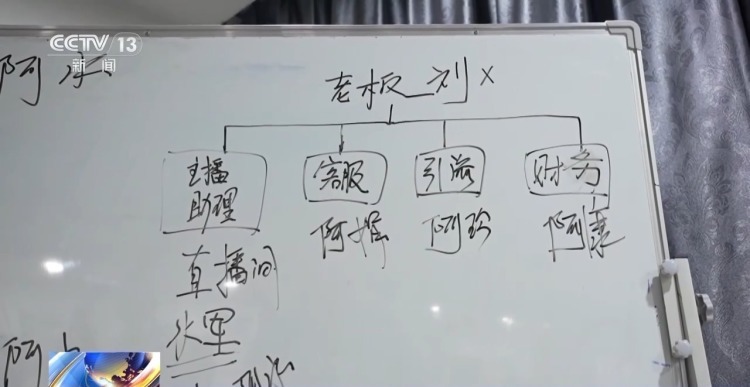 CCTV 13
新闻
老板 刘X
主播
助理
客服
引流
财务
阿辉
阿珍
阿康
直播间
水军